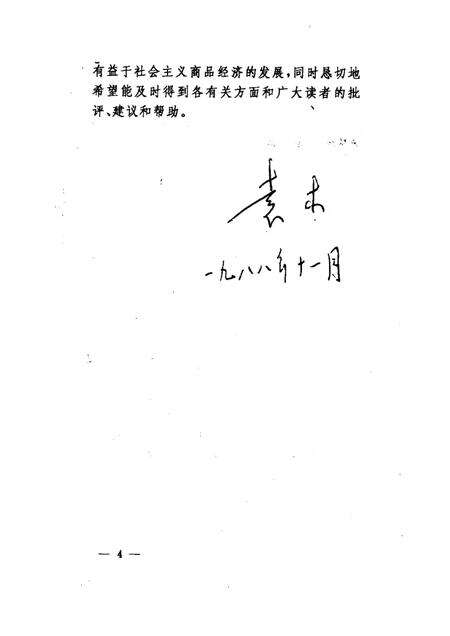 有益于社会主义商品经济的发展，同时恳切地
希望能及时得到各有关方面和广大读者的批
评、建议和帮助。
袁木
一九八八年十一月
— 4 —